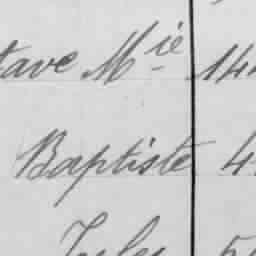 tave Mie 14
Baptiste 4
Jules 5